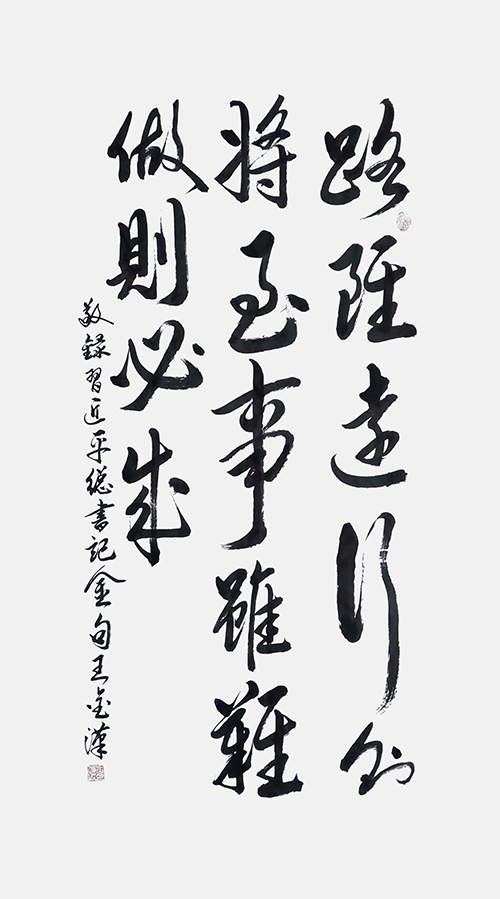 路雖遠行則
將至事雖難
做則必成
敬錄習近平總書記金句王金漢